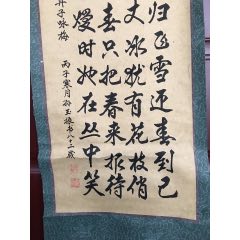 归飞雪迎春到已
丈冰犹有花枝俏
春只把春来报待
熳时她在丛中笑
算子咏梅
丙子寒月 王振书八十二歲